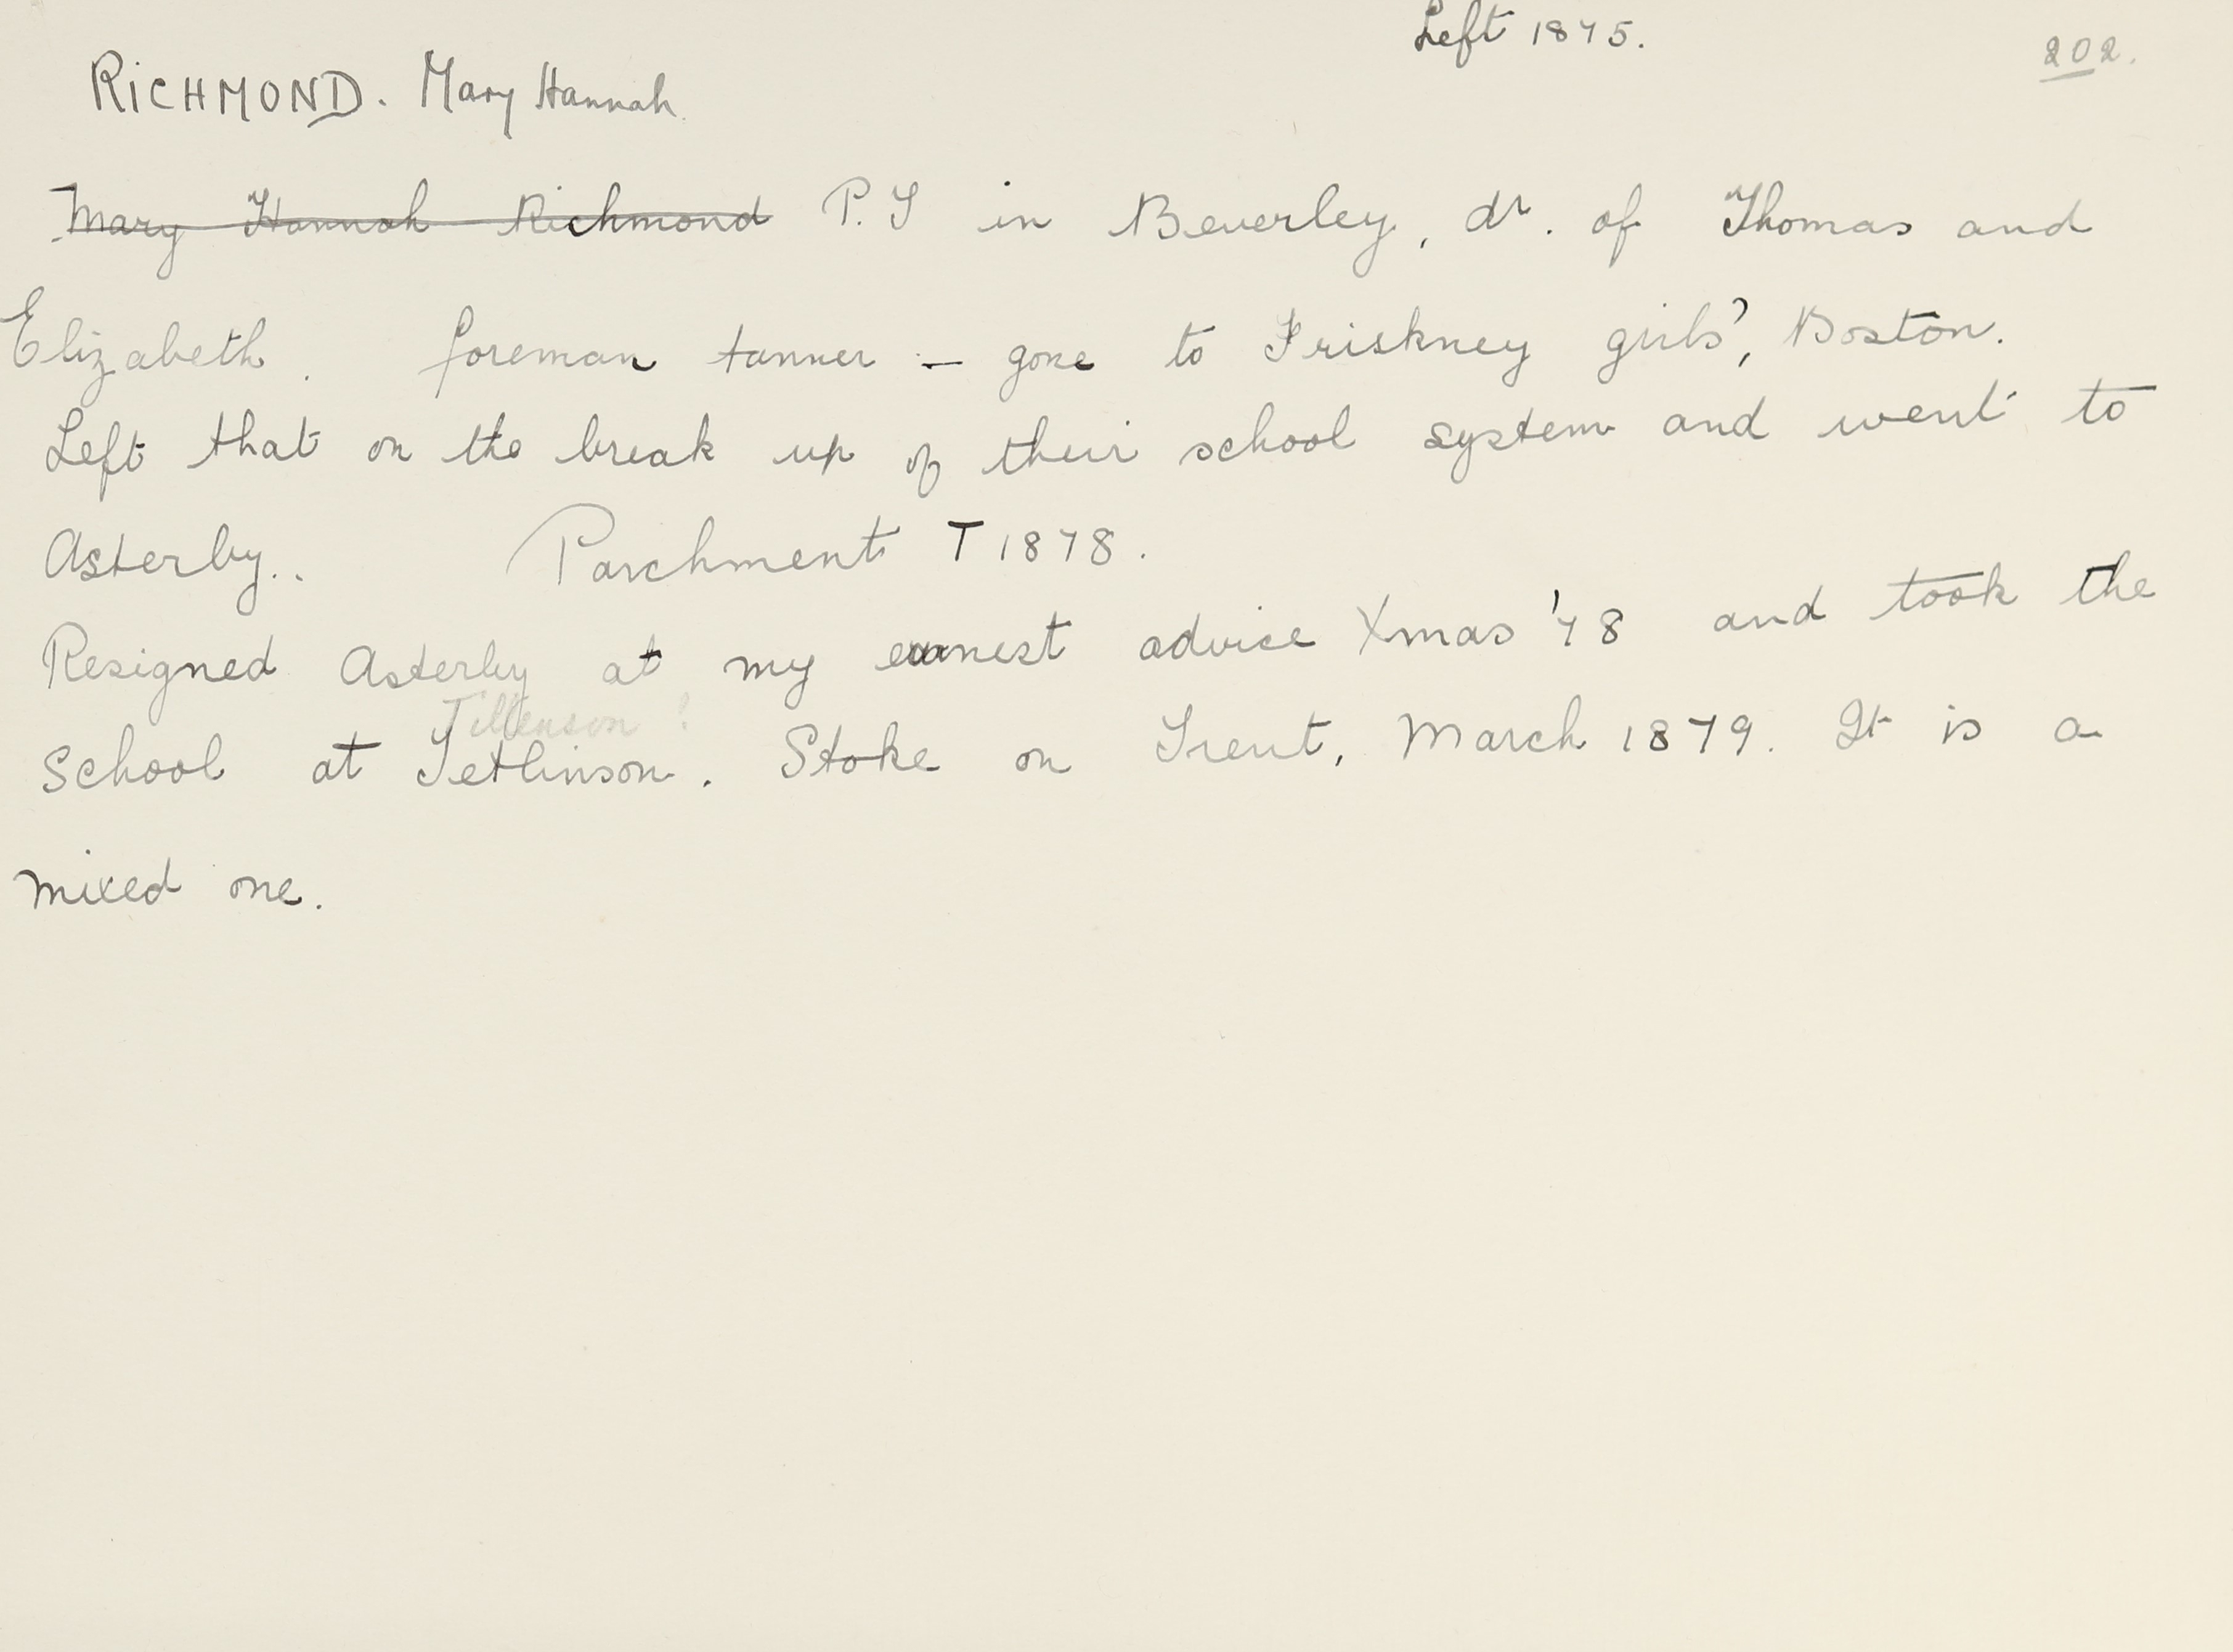 Left 1875.
202.
RICHMOND. Mary Hannah
Mary Hannah Richmond P.T in Beverley, dr. of Thomas and
Elizabeth. foreman tanner - gone to Friskney girls', Boston.
Left that on the break up of their school system and went to
Asterby.. Parchment T 1878.
Resigned Asterby at my earnest advice Xmas '78 and took the
Tillenson ?
School at Tetlinson. Stoke on Trent, March 1879. It is a
mixed one.